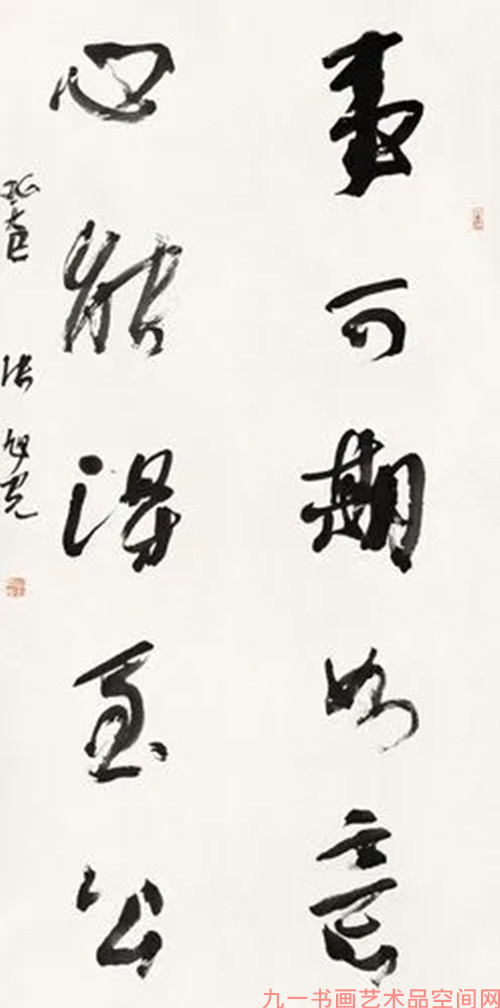 事可期如意
心能得至公
张旭光
九一书画艺术品空间网